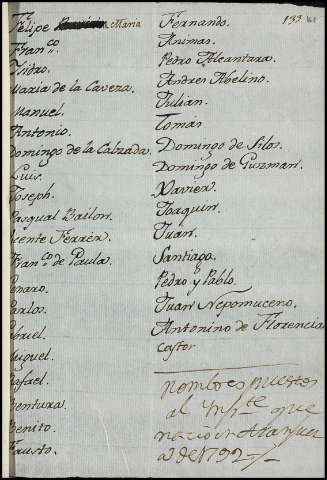 133
Felipe Maria
Fran.co
Isidro.
Maria de la Caveza.
Manuel.
Antonio.
Domingo de la Calzada.
Luis.
Joseph.
Pasqual Bailon.
Vicente Ferrér.
Fran.co de Paula.
Genaro.
Carlos.
Gabriel.
Miguel.
Rafael.
Ventura.
Benito.
Fausto.
Fernando.
Animas.
Pedro Alcantara.
Andres Abelino.
Julian.
Tomas
Domingo de Silos.
Domingo de Guzman.
Xavier.
Joaquin.
Juan.
Santiago.
Pedro y Pablo.
Juan Nepomuceno.
Antonino de Florencia
Castor
Nombres puestos
al Inf.te que
nacio en Aranjuez
de 1792